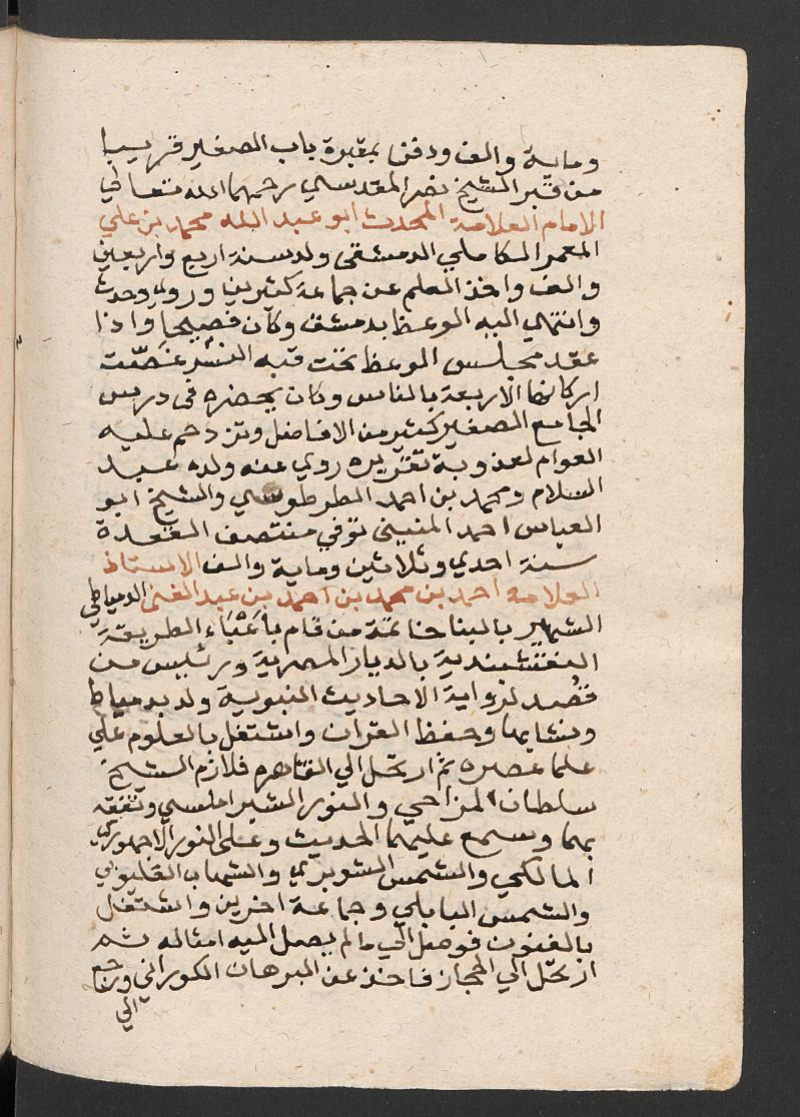 وماية والف ودفن بمقبرة باب الصغير قريبا
من قبر الشيخ نصر المقدسي رحمهما الله تعالي
الامام العلامة المحدث ابو عبد الله محمد بن علي
المعمر الكاملي الدمشقي ولد سنة اربع واربعين
والف واخذ العلم عن جماعة كثيرين وروي وحدث
وانتهي اليه الوعظ بدمشق وكان فصيحا واذا
عقد مجلس الوعظ تحت قبه النسر غصّت
اركانها الاربعة بالناس وكان يحضره في درس
الجامع الصغير كثير من الافاضل وتزدحم عليه
العوام لعذوبة تقريره روي عنه ولده عبد
السلام ومحمد بن احمد الطرطوسي والشيخ ابو
العباس احمد المنيني توفي منتصف القعدة
سنة احدي وثلاثين وماية والف الاستاذ
العلامه احمد بن محمد بن احمد بن عبد الغني الدمياطي
الشهير بالبنا خاتمة من قام بأعْبَاء الطريقة
النقشبندية بالديار المصرية ورئيس من
قُصد لرواية الاحاديث النبوية ولد بدمياط
ونشا بها وحفظ القران واشتغل بالعلوم علي
علما عصره ثم ارتحل الي القاهره فلازم الشيخ
سلطان المزاحي والنور الشبراملسي وتفقه
بهما وسمع عليهما الحديث وعلي النور الاجهوري
المالكي والشمس الشوبري والشهاب القليوبي
والشمس البابلي وجماعة اخرين واشتغل
بالفنون فوصل الي ما لم يصل اليه امثاله ثم
ارتحل الي الحجاز فاخذ عن البرهان الكوراني ورجع
الي